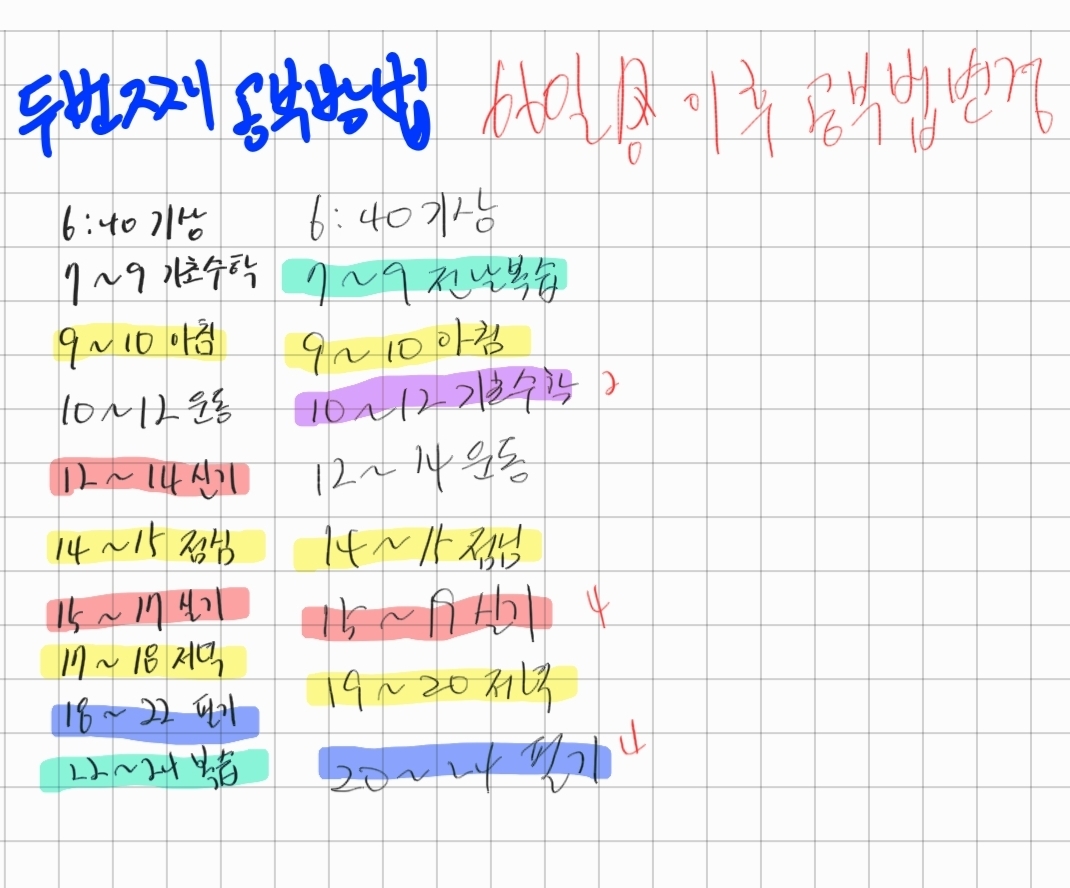 두번째 공부방법 이후 공부법변경
6:40 기상
7~9 기초수학
9~10 아침
10~12 운동
12~14 실기
14~15 점심
15~17 실기
17~18 저녁
18~22 필기
22~24 복습
6:40 기상
7~9 전날복습
9~10 아침
10~12 기초수학 2
12~14 운동
14~15 점심
15~19 실기 4
19~20 저녁
20~24 필기 4